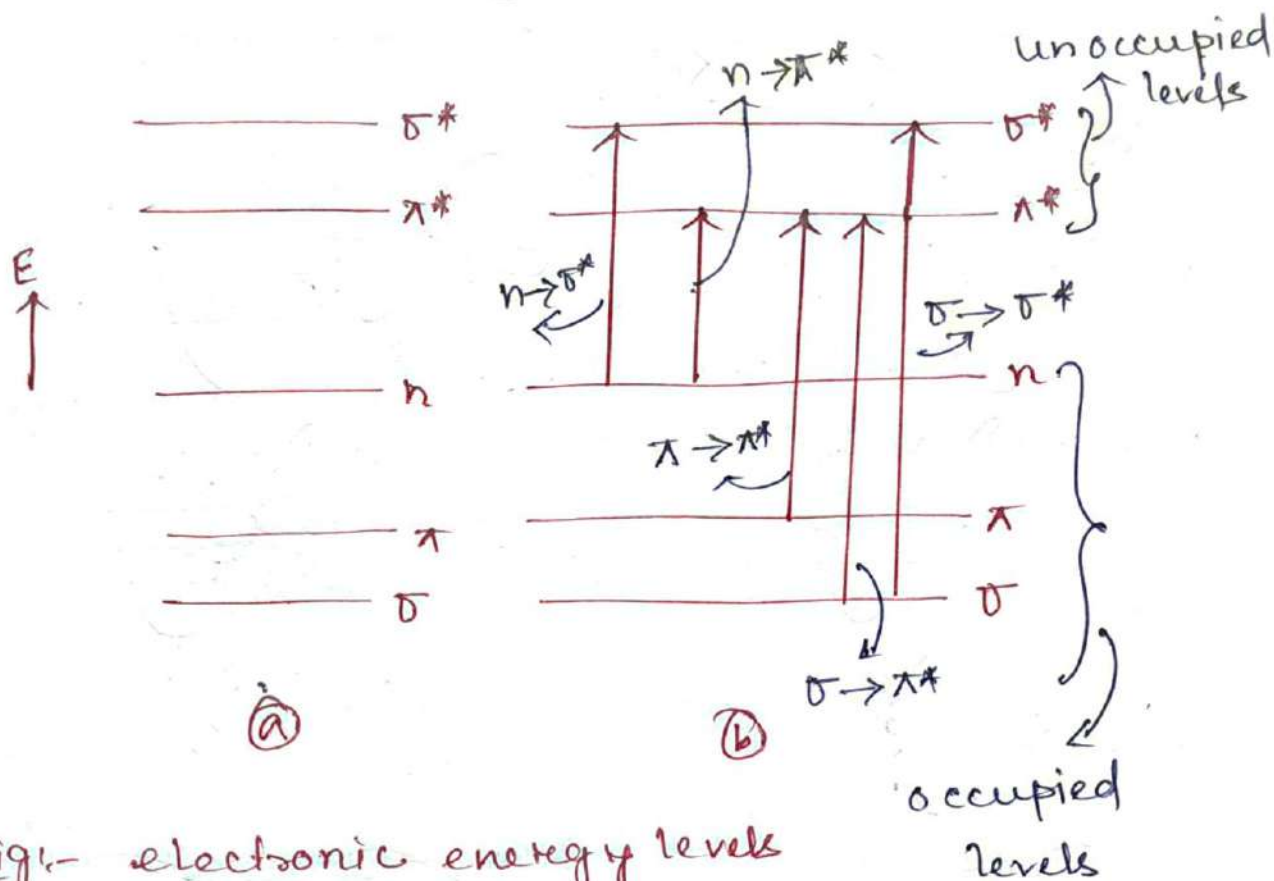 unoccupied
levels
n→π*
σ*
σ*
π*
π*
E
n→σ*
σ→σ*
n
n
π→π*
π
π
σ
σ
σ→π*
a
b
occupied
levels
ig:- electronic energy levels